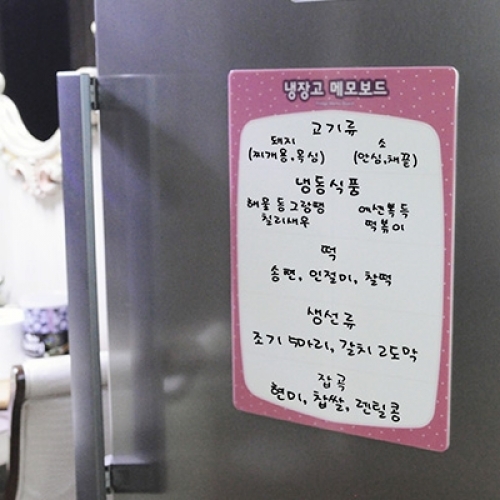 냉장고 메모보드
고기류
돼지 소
(찌개용,목심) (안심,채끝)
냉동식품
해물 동그랑땡
칠리새우 떡볶이
떡
송편, 인절미, 찰떡
생선류
조기 5마리, 갈치 2도막
잡곡
현미, 찹쌀, 렌틸콩